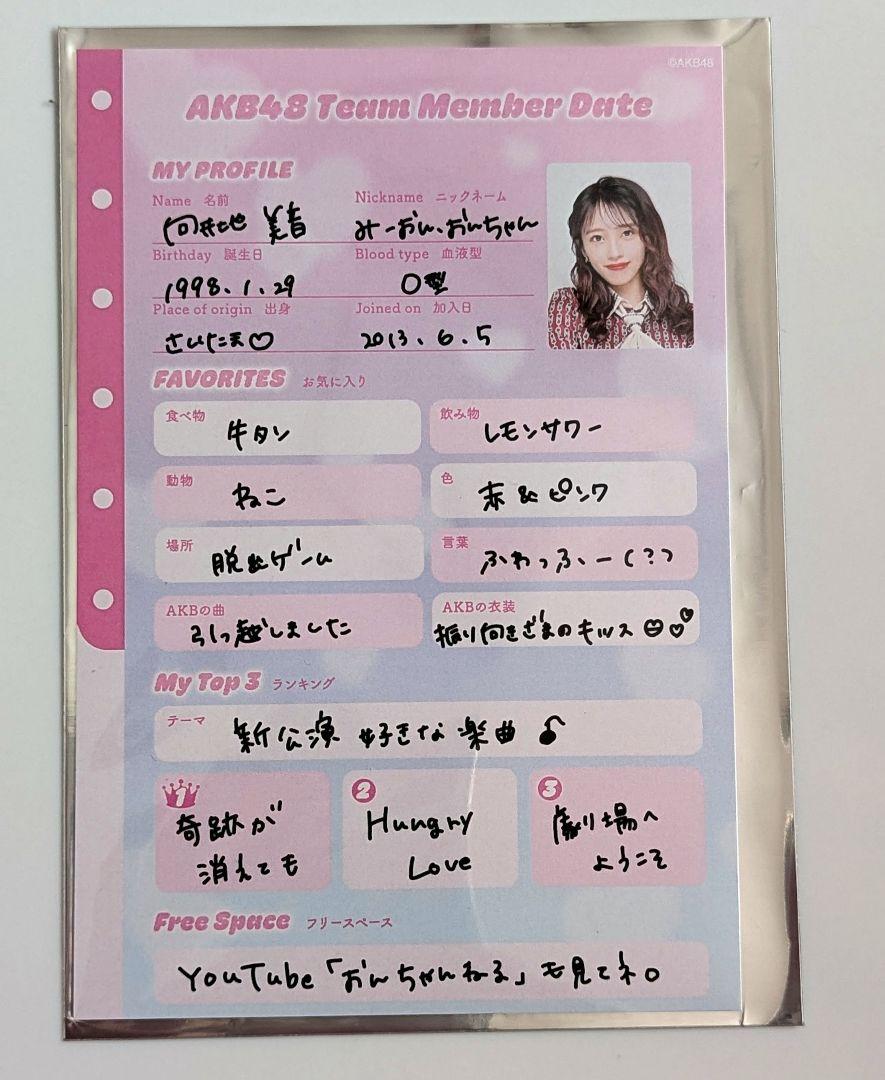 ©AKB48
AKB48 Team Member Date
MY PROFILE
Name 名前
Nickname ニックネーム
向井地 美音
みーおん、おんちゃん
Birthday 誕生日
Blood type 血液型
1998.1.29
O型
Place of origin 出身
Joined on 加入日
さいたま♡
2013.6.5
FAVORITES お気に入り
食べ物
牛タン
飲み物
レモンサワー
動物
ねこ
色
赤&ピンク
場所
脱出ゲーム
言葉
ふわっふー(??
AKBの曲
引っ越しました
AKBの衣装
振り向きざまのキッス
My Top 3 ランキング
テーマ
新公演 好きな楽曲♪
1
奇跡が
消えても
2
Hungry
Love
3
劇場へ
ようこそ
Free Space フリースペース
YouTube「おんちゃんねる」も見てネ。